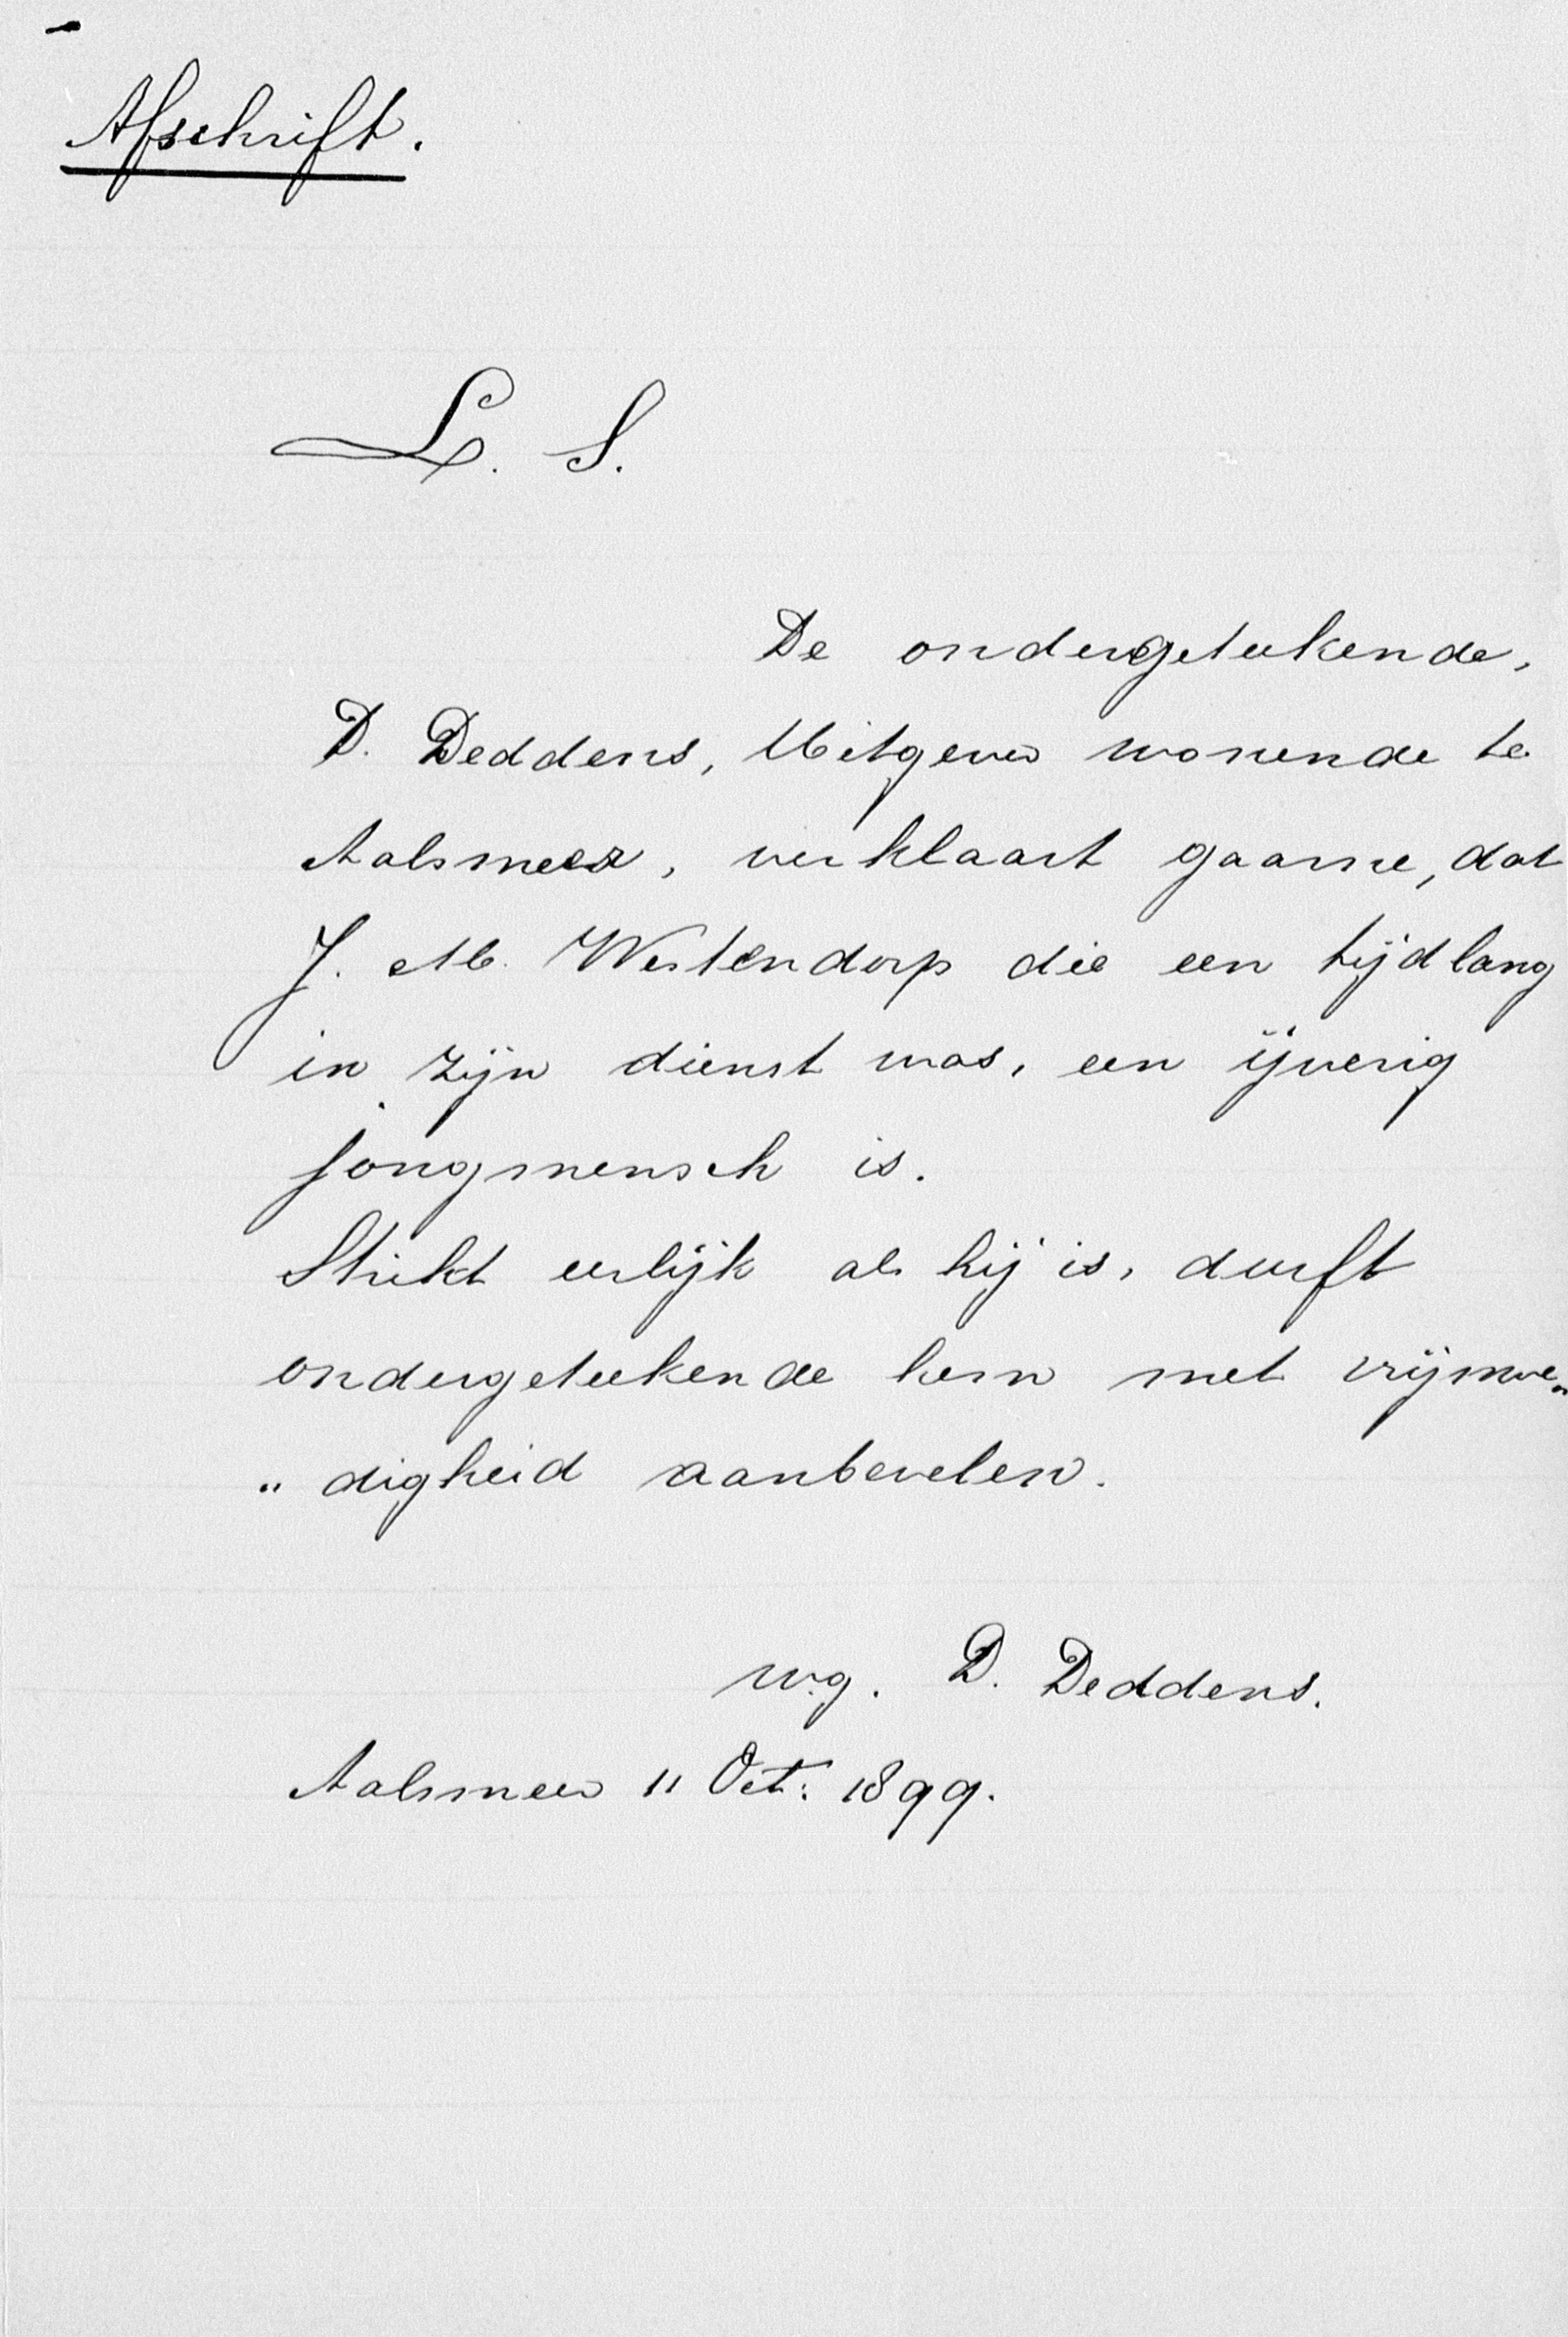 Afschrift.
L. S.
De ondergeteekende,
D. Deddens, Uitgever wonende te
Aalsmeer, verklaart gaarne, dat
J. M. Westendorp die een tijdlang
in zijn dienst was, een ijverig
jongmensch is.
Strikt eerlijk als hij is, durft
ondergeteekende hem met vrijmoe„
„digheid aanbevelen.
w.g. D. Deddens.
Aalsmeer 11 Oct: 1899.